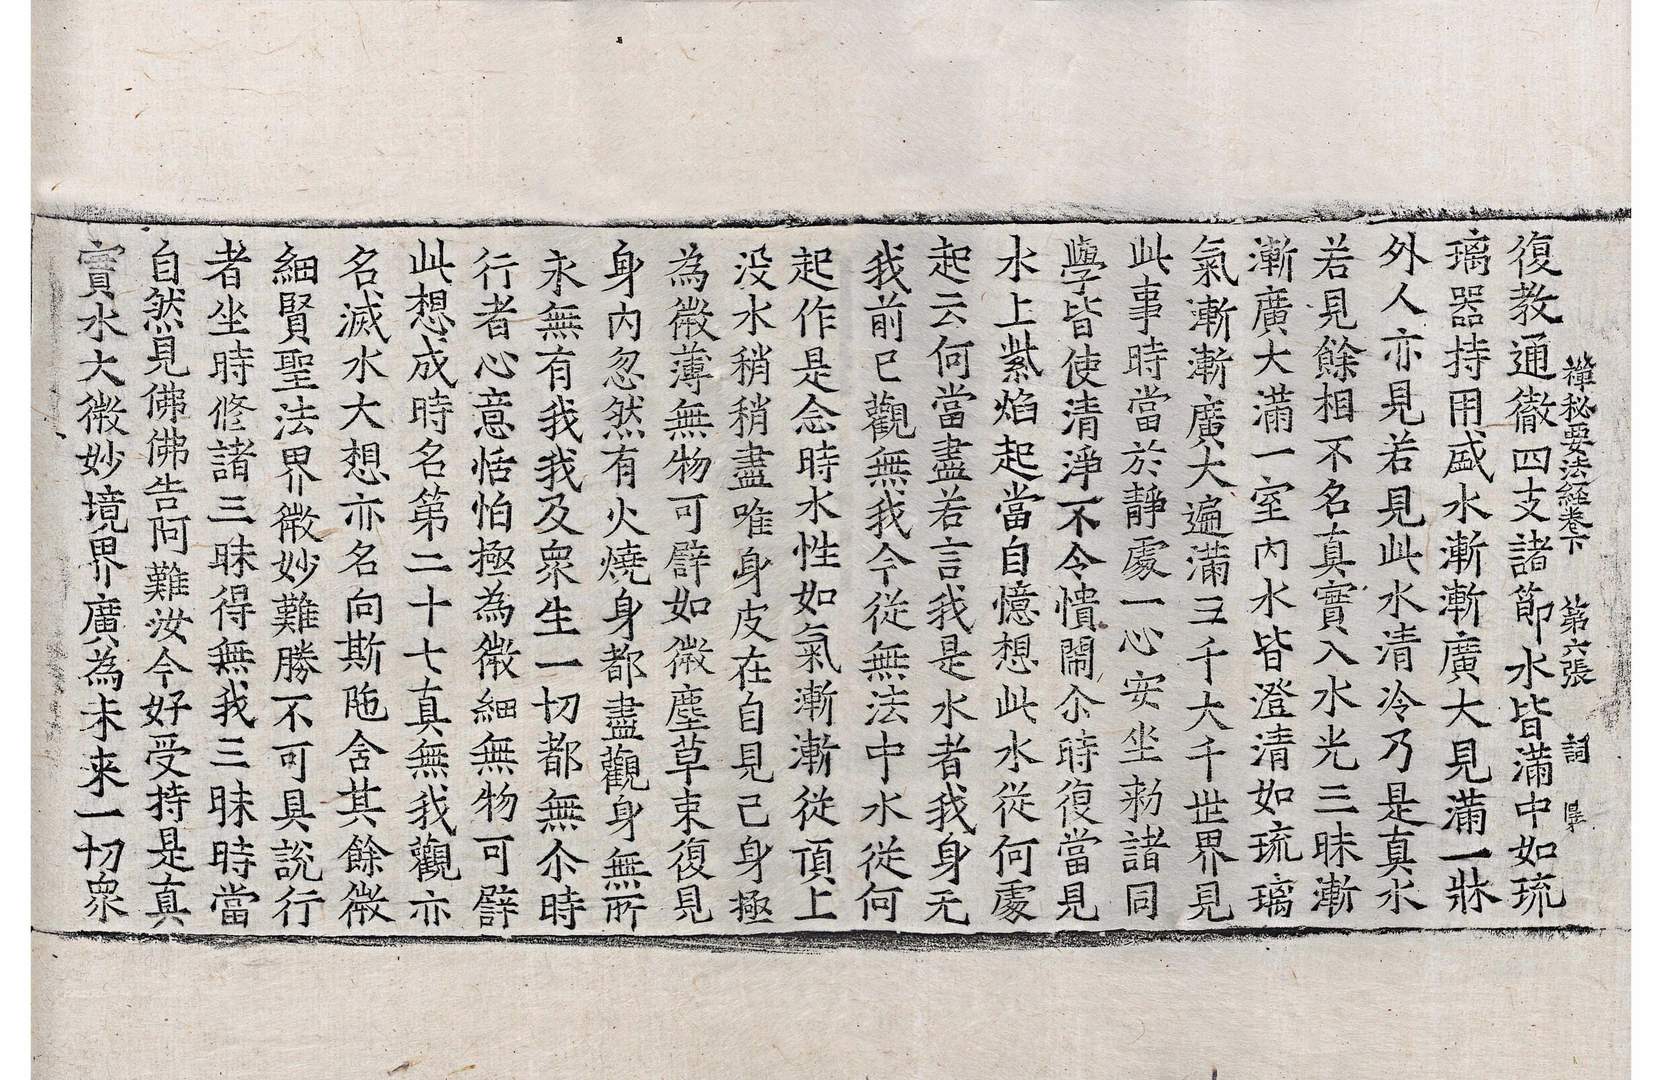 禪秘要法經卷下　第六張　詞
復教通徹四支諸節水皆滿中如琉
璃器持用盛水漸漸廣大見滿一牀
外人亦見若見此水清冷乃是真水
若見餘相不名真實入水光三昧漸
漸廣大滿一室內水皆澄清如琉璃
氣漸漸廣大遍滿三千大千世界見
此事時當於靜處一心安坐勑諸同
學皆使清淨不令憒閙尒時復當見
水上紫焰起當自憶想此水從何處
起云何當盡若言我是水者我身无
我前已觀無我今從無法中水從何
起作是念時水性如氣漸漸從頂上
没水稍稍盡唯身皮在自見己身極
為微薄無物可譬如微塵草束復見
身內忽然有火燒身都盡觀身無所
永無有我我及衆生一切都無尒時
行者心意恬怕極為微細無物可譬
此想成時名第二十七真無我觀亦
名滅水大想亦名向斯陁含其餘微
細賢聖法界微妙難勝不可具說行
者坐時修諸三昧得無我三昧時當
自然見佛佛告阿難汝今好受持是真
實水大微妙境界廣為未來一切衆